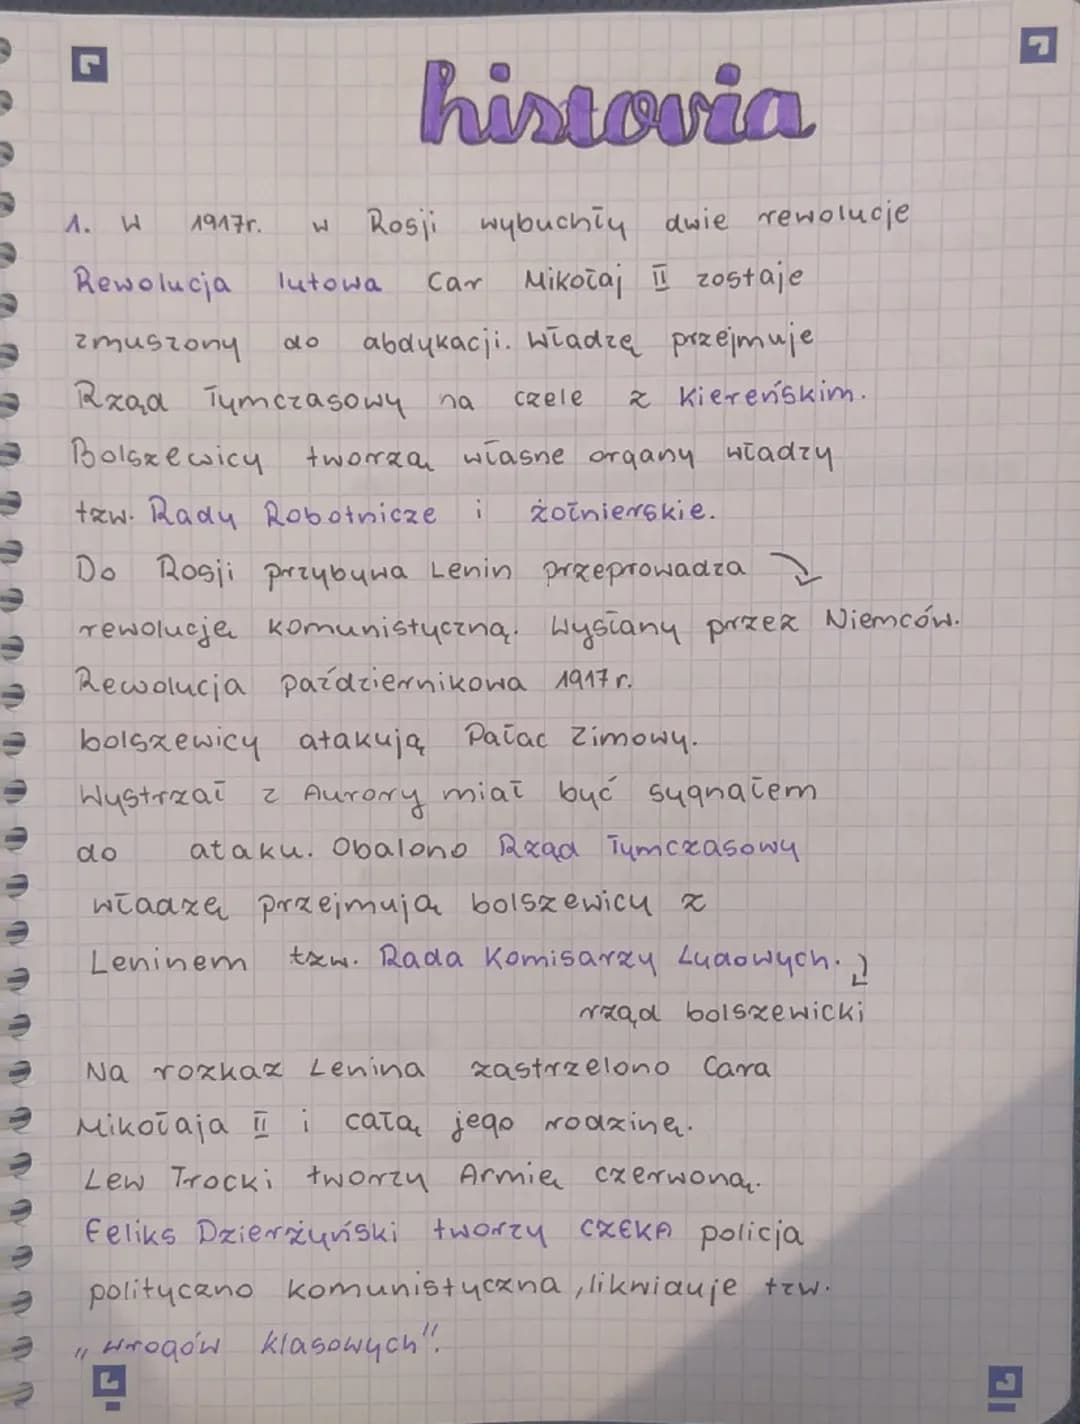 historia
1. W 1917r. w Rosji wybuchły dwie rewolucje
Rewolucja lutowa Car Mikołaj II zostaje
zmuszony do abdykacji. Władzę przejmuje
Rząd Tymczasowy na czele z Kiereńskim.
Bolszewicy tworzą własne organy władzy
tzw. Rady Robotnicze i żołnierskie.
Do Rosji przybywa Lenin przeprowadza
rewolucję komunistyczną. Wysłany przez Niemców.
Rewolucja październikowa 1917 r.
bolszewicy atakują Pałac Zimowy.
Wystrzał z Aurory miał być sygnałem
do ataku. Obalono Rząd Tymczasowy
władzę przejmują bolszewicy z
Leninem tzw. Rada Komisarzy Ludowych.
rząd bolszewicki
Na rozkaz Lenina zastrzelono Cara
Mikołaja II i całą jego rodzinę.
Lew Trocki tworzy Armię czerwoną.
Feliks Dzierżyński tworzy CZEKA policja
polityczno komunistyczna, likwiduje tzw.
„wrogów klasowych".